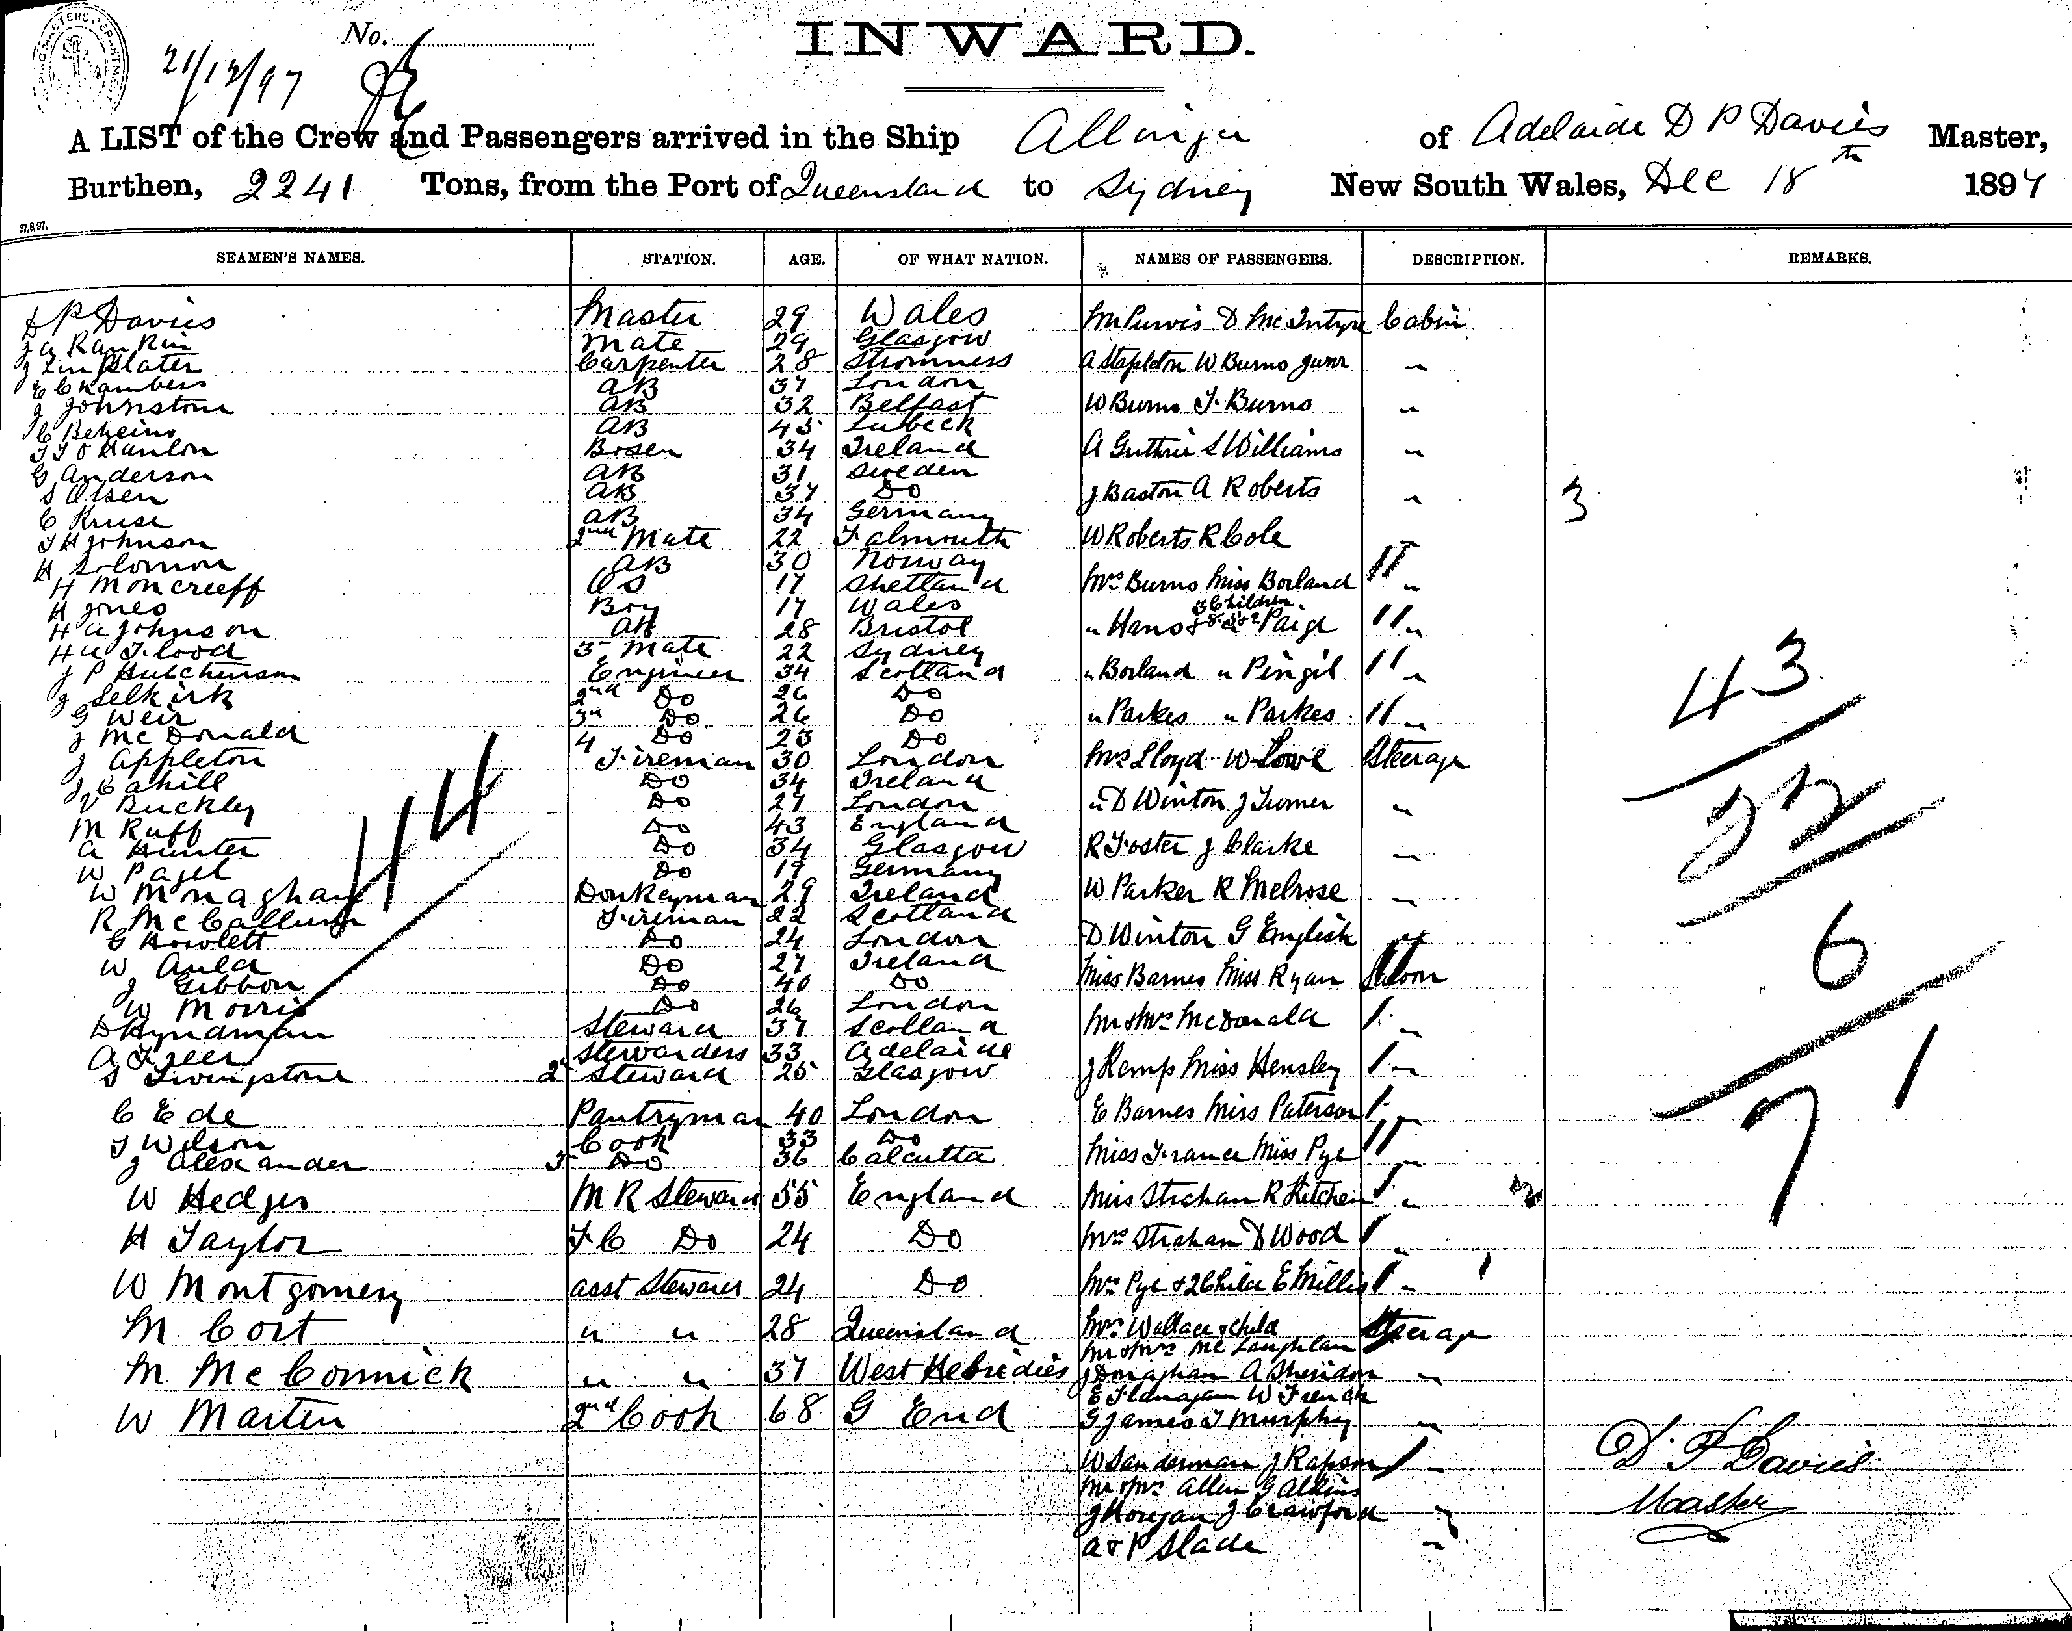 No.
21/12/97
INWARD.
A LIST of the Crew and Passengers arrived in the Ship Allinga of Adelaide D P Davies Master,
Burthen, 2241 Tons, from the Port of Queensland to Sydney New South Wales, Dec 18th 1897
27.8.97.
SEAMEN'S NAMES. STATION. AGE. OF WHAT NATION. NAMES OF PASSENGERS. DESCRIPTION. REMARKS.
D P Davies Master 29 Wales Mr Purvis D McIntyre Cabin
J A Rankin Mate 29 Glasgow
J Linklater Carpenter 28 Stromness A Stapleton W Burns Junr "
E Chambers AB 37 London
J Johnston AB 32 Belfast W Burns F. Burns "
C Beheins AB 45 Lubeck
T F O Hanlon Bosen 34 Ireland A Guthrie S Williams "
G Anderson AB 31 Sweden
S Olsen AB 37 Do J Baston A Roberts " 3
C Kruse AB 34 Germany
T H Johnson 2nd Mate 22 Falmouth W Roberts R Cole
H Solomon AB 30 Norway
H Moncreeff OS 17 Shetland Mrs Burns Miss Borland "
H Jones Boy 17 Wales 3 Children
H A Johnson AB 28 Bristol " Hans & Paige "
H A Flood 3 Mate 22 Sydney
J P Hutchinson Engineer 34 Scotland " Borland " Pingil "
J Selkirk 2nd Do 26 Do
G Weir 3rd Do 26 Do " Parkes " Parkes "
J McDonald 4 Do 23 Do
J Appleton Fireman 30 London Mrs Lloyd W Lowe Steerage
J Cahill Do 34 Ireland
V Buckley Do 27 London " D Winton J Turner "
M Ruff Do 43 England
A Hunter Do 34 Glasgow R Foster J Clarke "
W Paget Do 19 Germany
W Monaghan Donkeyman 29 Ireland W Parker R Melrose "
R McCallum Fireman 22 Scotland
G Howlett Do 24 London D Winton G English "
W Auld Do 27 Ireland Miss Barnes Miss Ryan Saloon
J Gibbon Do 40 Do
W Morris Do 26 London
D Hyndman Steward 37 Scotland Mr & Mrs McDonald "
A Freer Stewardess 33 Adelaide
S Livingstone 2 Steward 25 Glasgow J Kemp Miss Hensley "
C Ede Pantryman 40 London E Barnes Miss Paterson "
T Wilson Cook 33 Do
J Alexander 3 Do 36 Calcutta Miss France Miss Pye "
W Hedges M R Steward 55 England Miss Strahan R Kitchen "
H Taylor F C Do 24 Do Mrs Strahan D Wood "
W Montgomery asst Steward 24 Do Mrs Pye & 2 Child E Millis "
M Cort " " 28 Queensland Mrs Wallace & child Steerage
Mr & Mrs McLaughlan
M McCormick " " 37 West Hebridies J Donaghan A Sheridan "
E Flanagan W French
W Martin 2nd Cook 68 G End G James T Murphy "
W Sanderman J Rapson "
Mr & Mrs Allen G Alkins
J Horgan J Crawford "
A & P Slade "
44
43
22
6
71
D. P Davies
Master